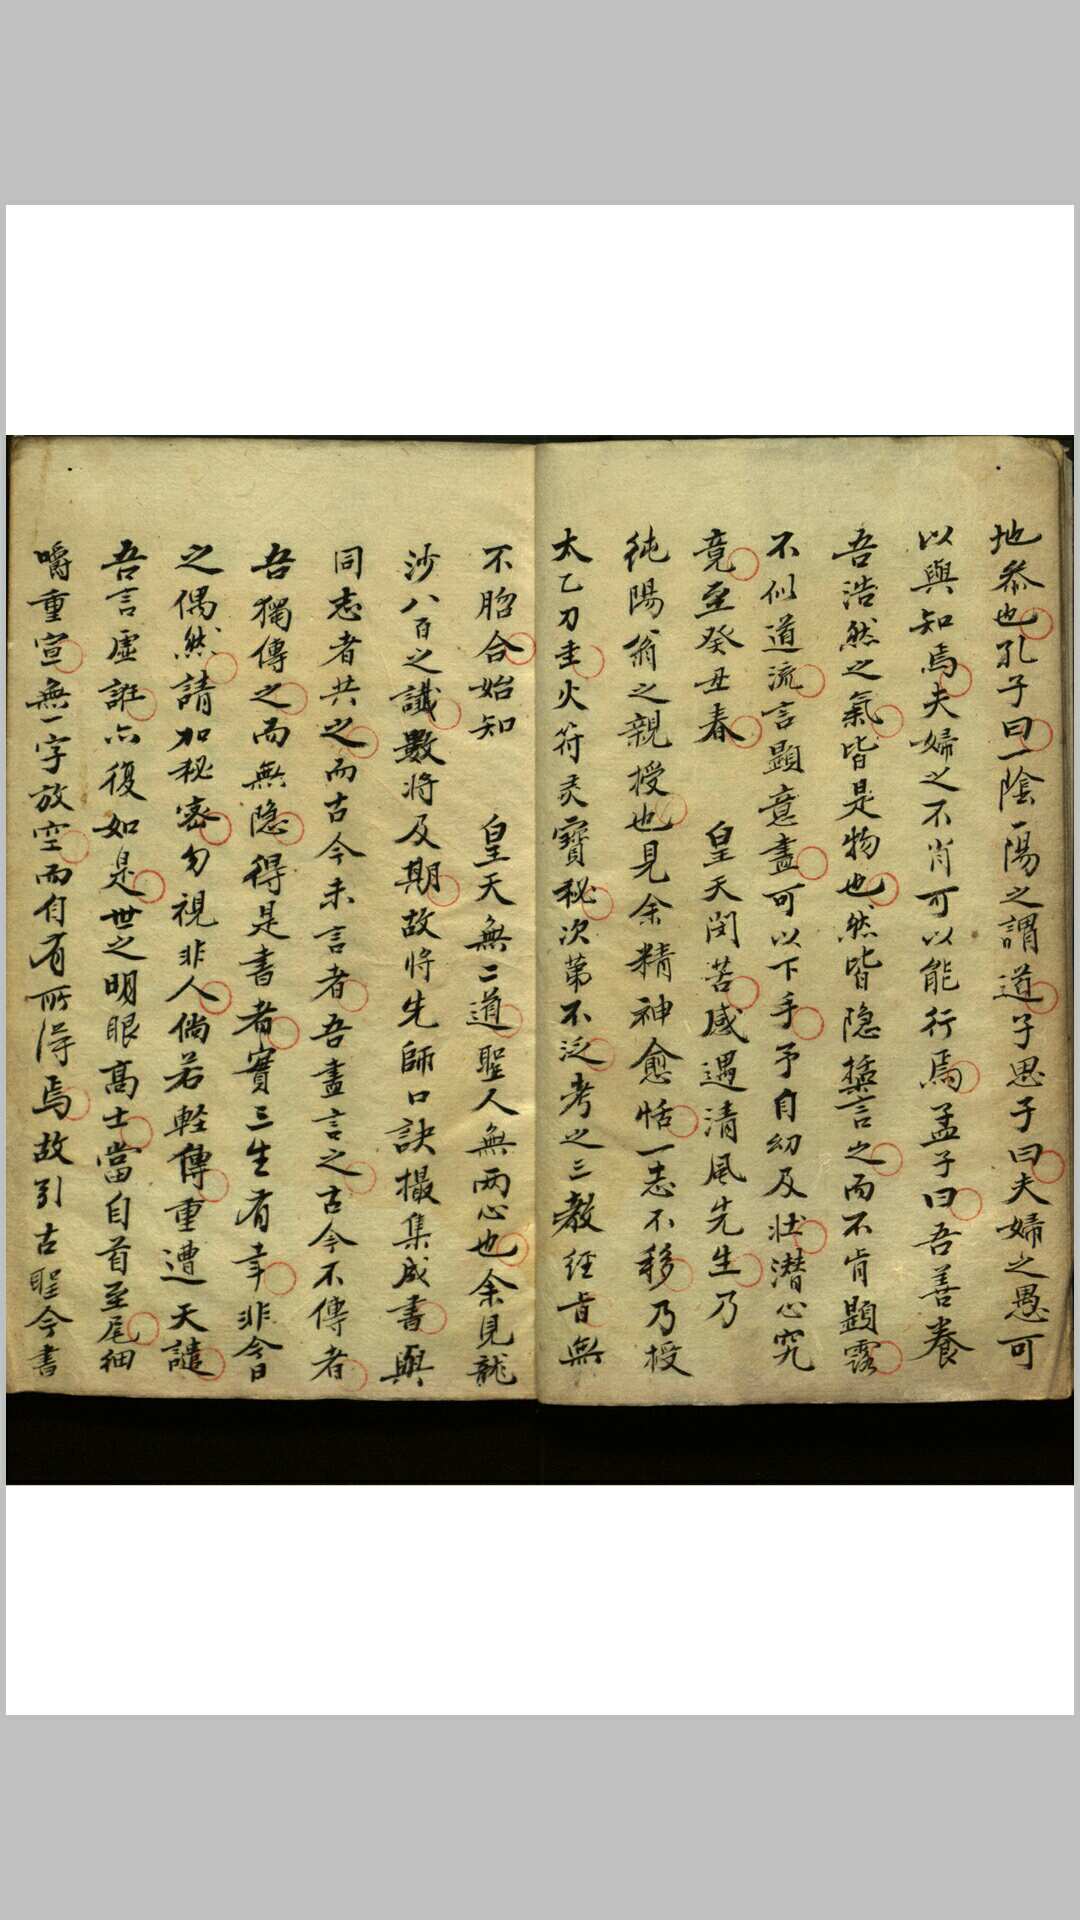 地叅也孔子曰一陰一陽之謂道子思子曰夫婦之愚可
以與知焉夫婦之不肖可以能行焉孟子曰吾善養
吾浩然之氣皆是物也然皆隐藴言之而不肯顕露
不似道流言顕意盡可以下手予自幼及壮潜心究
竟至癸丑春 皇天闵苦感遇清風先生乃
純陽翁之親授也見余精神愈恬一志不移乃授
太乙刀圭火符灵寶秘次第不泛考之三教経旨無
不胳合始知 皇天無二道聖人無两心也余見龍
沙八百之讖數将及期故将先師口訣撮集成書與
同志者共之而古今未言者吾盡言之古今不傳者
吾獨傳之而無隐得是書者實三生有幸非今日
之偶然請加秘密勿視非人倘若軽傳重遭天譴
吾言虚誑亦復如是世之明眼髙士當自首至尾細
嚼重宣無一字放空而自有所得焉故引古聖今書